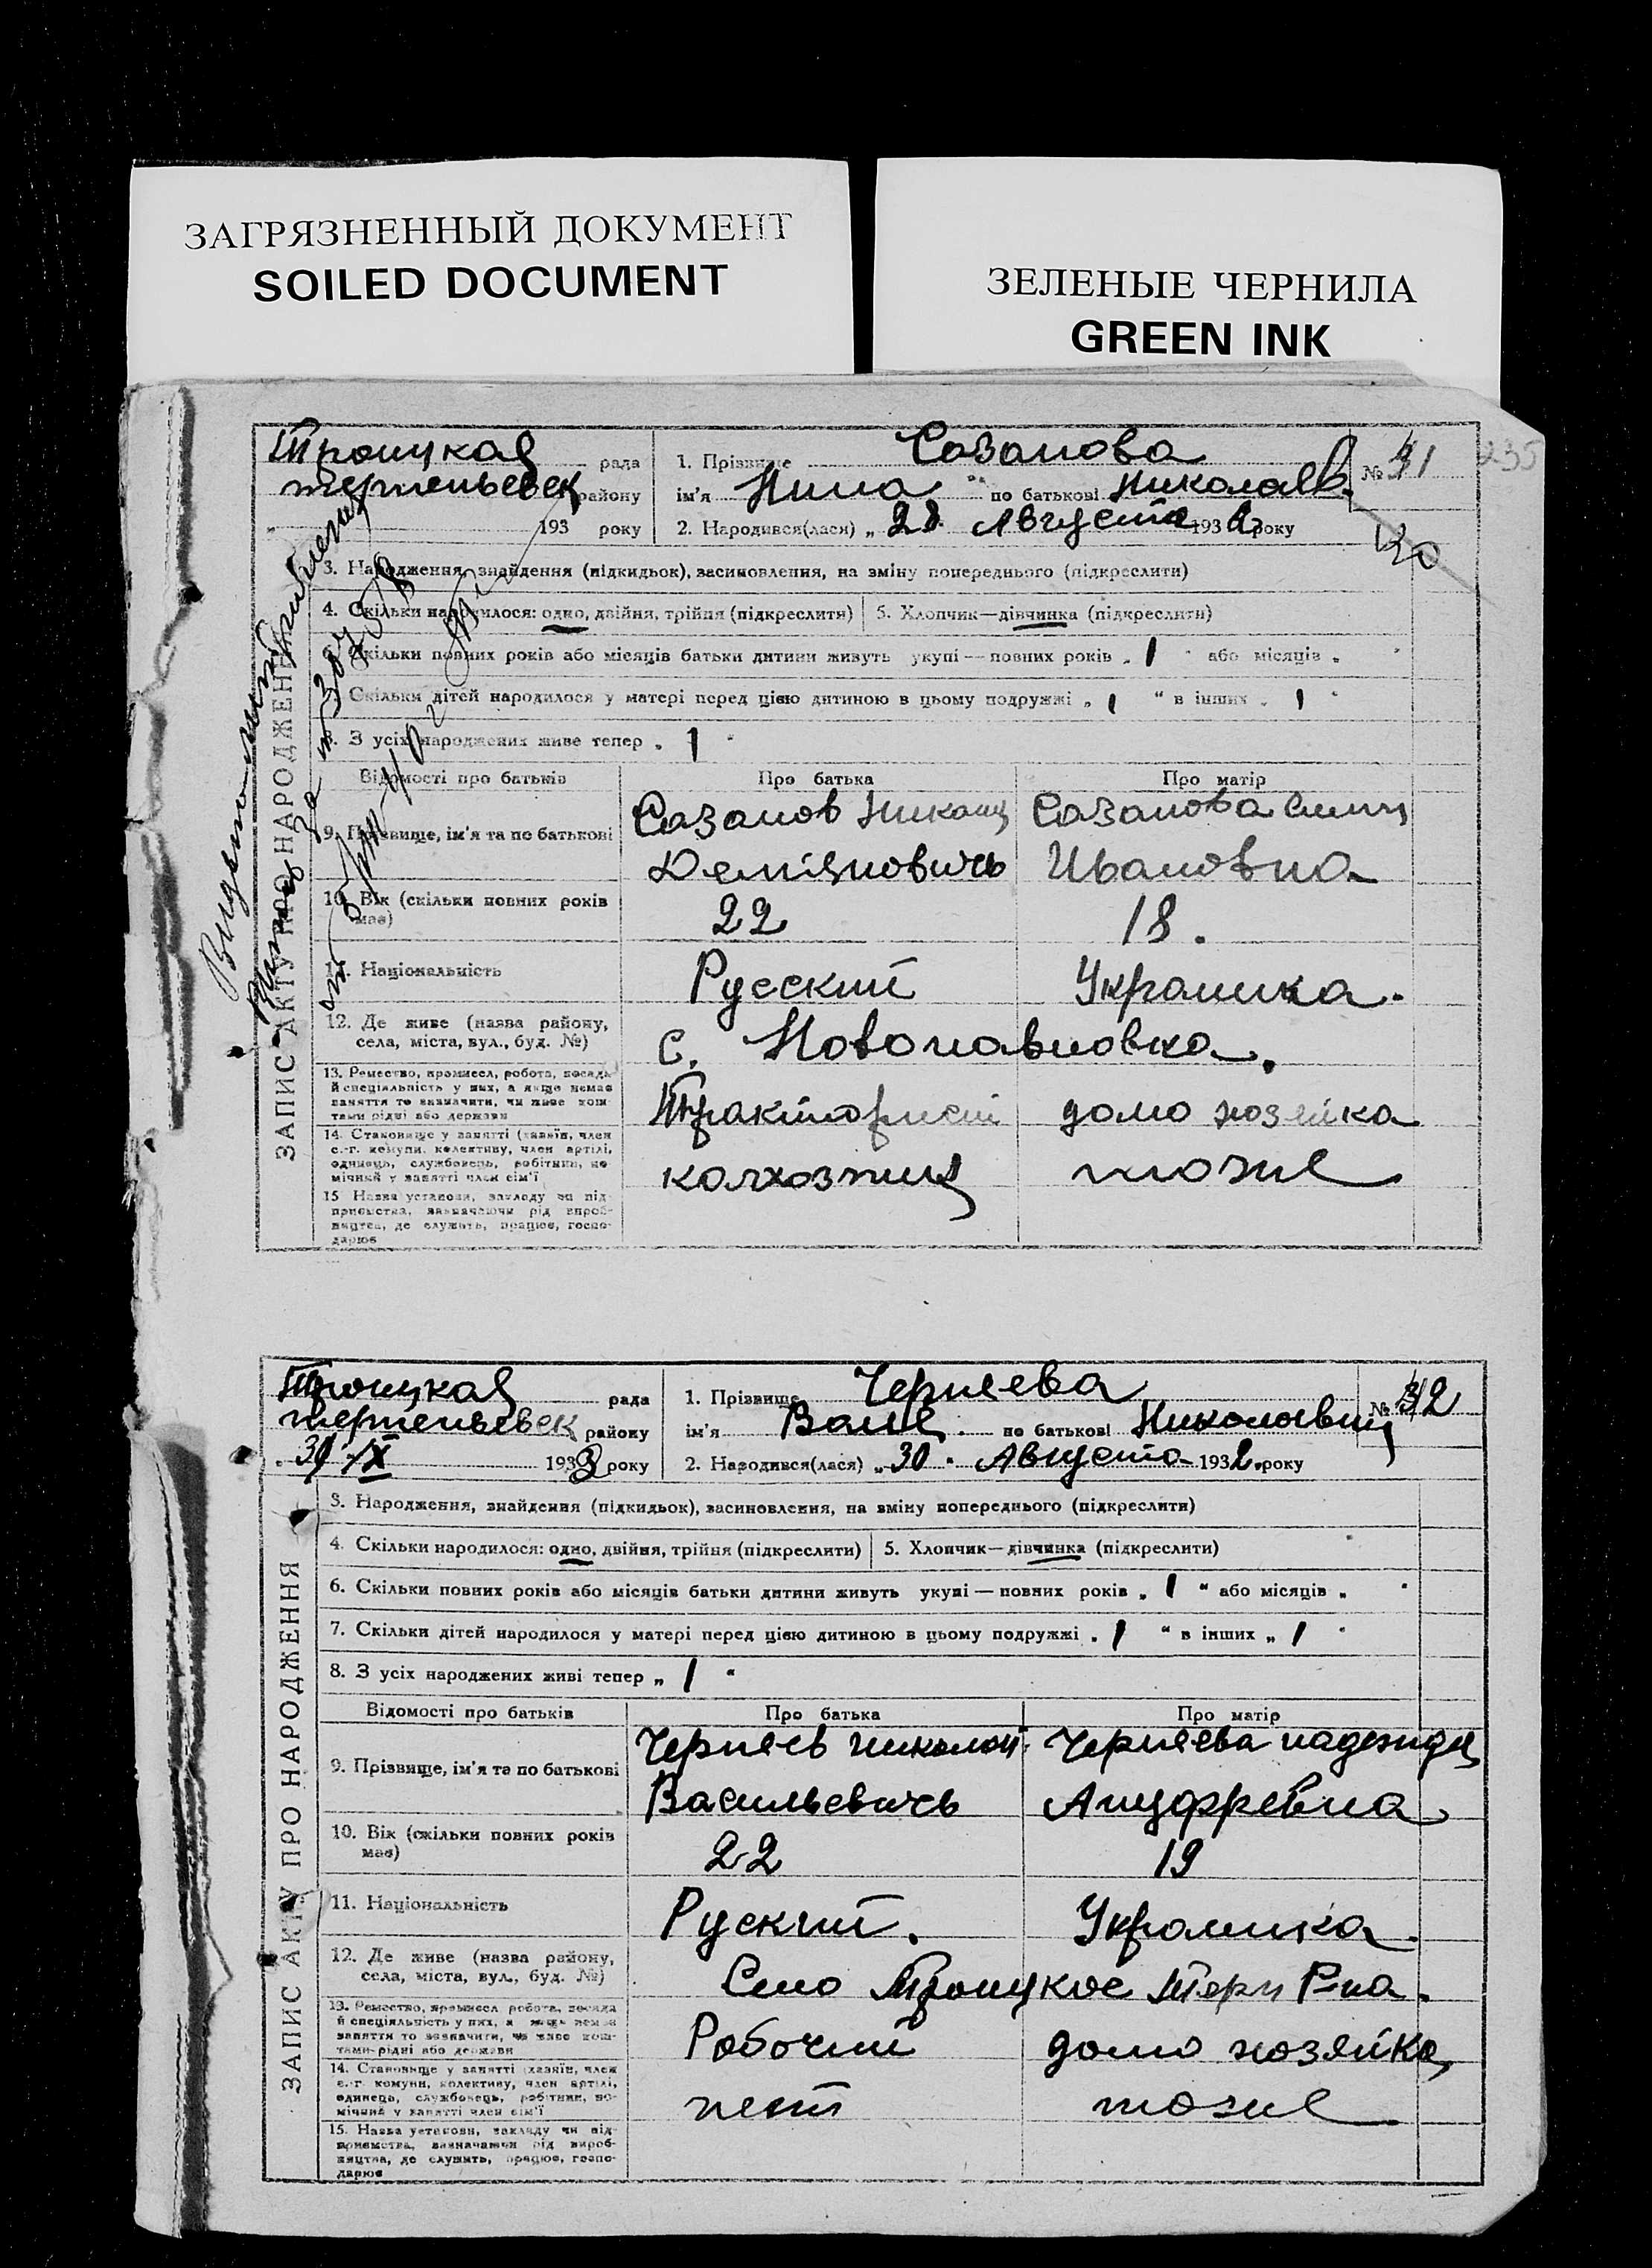 ЗАГРЯЗНЕННЫЙ ДОКУМЕНТ
SOILED DOCUMENT
ЗЕЛЕНЫЕ ЧЕРНИЛА
GREEN INK
235
Троицкая рада
терпеньевск району
193 року
1. Прізвище Сазанова
ім'я Нина по батькові Николаев.
№ 31
2. Народився(лася) „ 28 Августа 1932 року
3. Народження, знайдення (підкидьок), засиновлення, на зміну попереднього (підкреслити)
4. Скільки народилося: одно, двійня, трійня (підкреслити)
5. Хлопчик—дівчинка (підкреслити)
6. Скільки повних років або місяців батьки дитини живуть укупі — повних років „ 1 “ або місяців „
7. Скільки дітей народилося у матері перед цією дитиною в цьому подружжі „ 1 “ в інших „ 1 “
8. З усіх народжених живе тепер „ 1 “
Відомості про батьків
Про батька
Про матір
9. Прізвище, ім'я та по батькові
Сазанов
Демяновичь
Сазанова
Ивановна
10. Вік (скільки повних років має)
22
18.
11. Національність
Русский
Украинка.
12. Де живе (назва району,
села, міста, вул., буд. №)
с. Новопавловка.
13. Ремество, промисел, робота, посада
й спеціальність у них, а якщо немає
заняття то зазначити, чи живе кош-
тами рідні або держави
Тракторист
домо хозяйка
14. Становище у занятті (хазяїн, член
с.-г. комуни, колективу, член артілі,
одинець, службовець, робітник, по-
мічний у занятті член сім'ї
колхозник
тоже
15 Назва установи, закладу чи під-
приємства, зазначаючи рід вироб-
ництва, де служить, працює, госпо-
дарює
ЗАПИС АКТУ ПРО НАРОДЖЕННЯ
Троицкая рада
терпеньевск району
30/IX 1933 року
1. Прізвище Черняева
ім'я Валя. по батькові
№ 32
2. Народився(лася) „ 30. Августа 1932. року
3. Народження, знайдення (підкидьок), засиновлення, на зміну попереднього (підкреслити)
4. Скільки народилося: одно, двійня, трійня (підкреслити)
5. Хлопчик—дівчинка (підкреслити)
6. Скільки повних років або місяців батьки дитини живуть укупі — повних років „ 1 “ або місяців „ “
7. Скільки дітей народилося у матері перед цією дитиною в цьому подружжі „ 1 “ в інших „ 1 “
8. З усіх народжених живі тепер „ 1 “
Відомості про батьків
Про батька
Про матір
9. Прізвище, ім'я та по батькові
Черняев николай
Васильевичь
Черняева надежда
Ануфревна
10. Вік (скільки повних років
має)
22
19
11. Національність
Руский.
Украинка.
12. Де живе (назва району,
села, міста, вул., буд. №)
Село Троицкое Терп Р-на.
13. Ремество, промисел робота, посада
й спеціальність у них, а якщо немає
заняття то зазначити, чи живе кош-
тами рідні або держави
Робочий
домо хозяйка
14. Становище у занятті (хазяїн, член
с.-г. комуни, колективу, член артілі,
одинець, службовець, робітник, по-
мічний у занятті член сім'ї
нет
тоже
15. Назва установи, закладу чи під-
приємства, зазначаючи рід вироб-
ництва, де служить, працює, госпо-
дарює
ЗАПИС АКТУ ПРО НАРОДЖЕННЯ